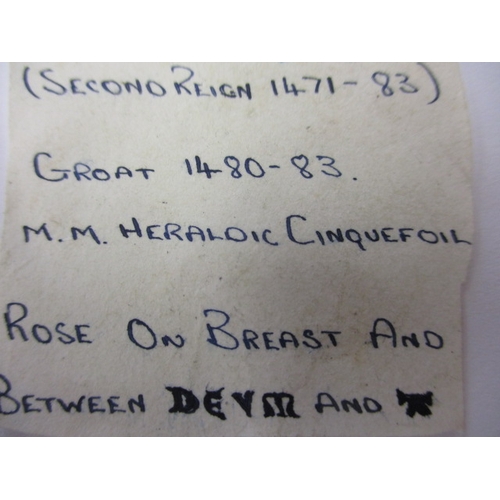 (SECOND REIGN 1471-83)
GROAT 1480-83.
M.M. HERALDIC CINQUEFOIL
ROSE ON BREAST AND
BETWEEN DEVM AND